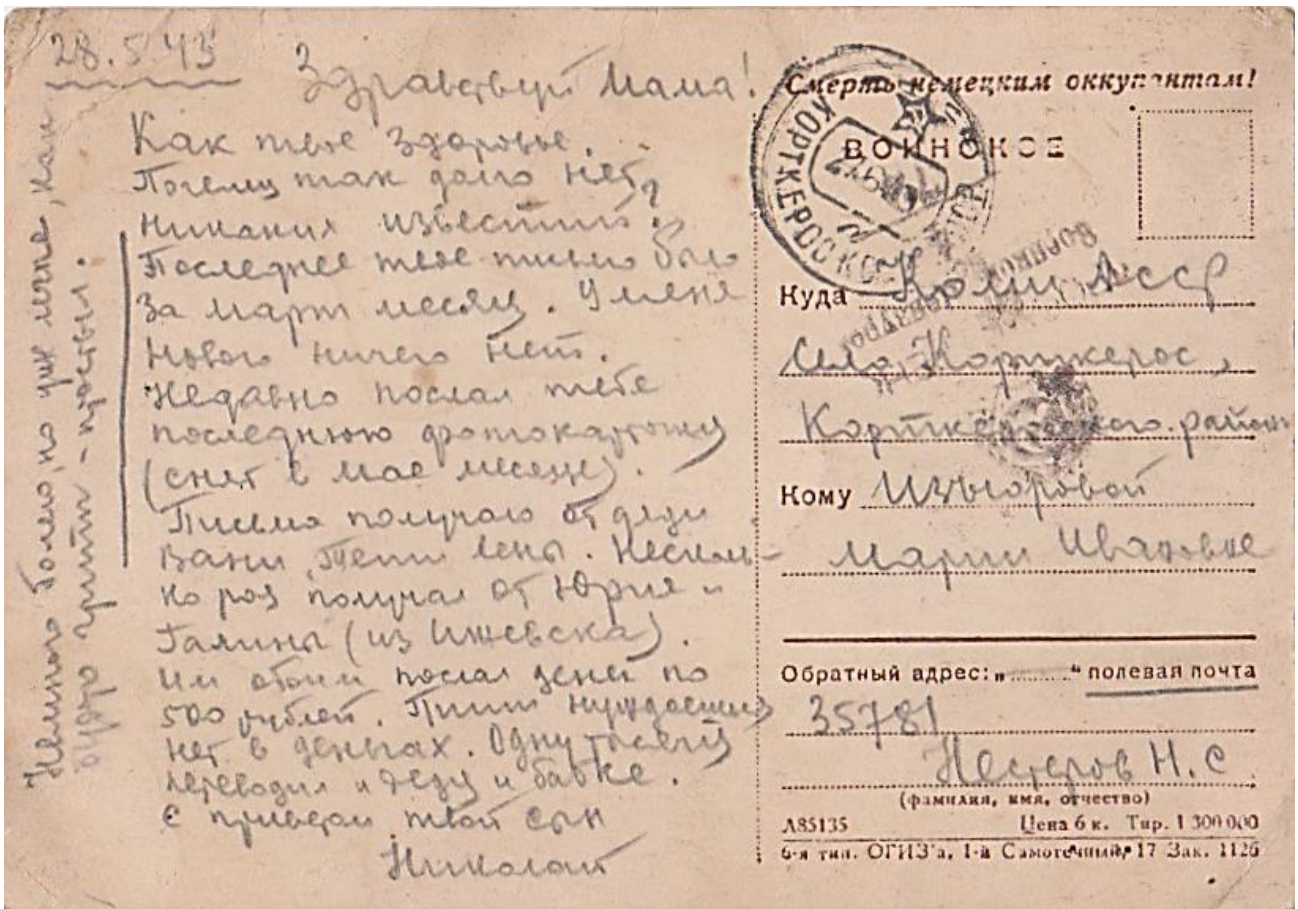 28.5.43
Здравствуй Мама!
Как твое здоровье.
Почему так долго нет
никаких известий?
Последнее твое письмо было
за март месяц. У меня
нового ничего нет.
Недавно послал тебе
последнюю фотокарточку
(снят в мае месяце).
Письма получаю от дяди
Вани, Тети Лены. Несколь-
ко раз получал от Юрия и
Галины (из Ижевска).
Им обоим послал денег по
500 рублей. Пиши нуждаешься
нет в деньгах. Одну тысячу
переводил и деду и бабке.
С приветом твой сын
Николай
Немного болею, но уже легче, как
будто грипп - простыл.
Смерть немецким оккупантам!
ВОИНСКОЕ
КОРТКЕРОС
Куда Коми АССР
Село Корткерос,
Корткеросского района
Кому Изъюровой
Марии Ивановне
Обратный адрес: „ “ полевая почта
35781
Нестеров Н.С
(фамилия, имя, отчество)
А85135 Цена 6 к. Тир. 1 300 000
6-я тип. ОГИЗ'а, 1-й Самотечный, 17 Зак. 1126